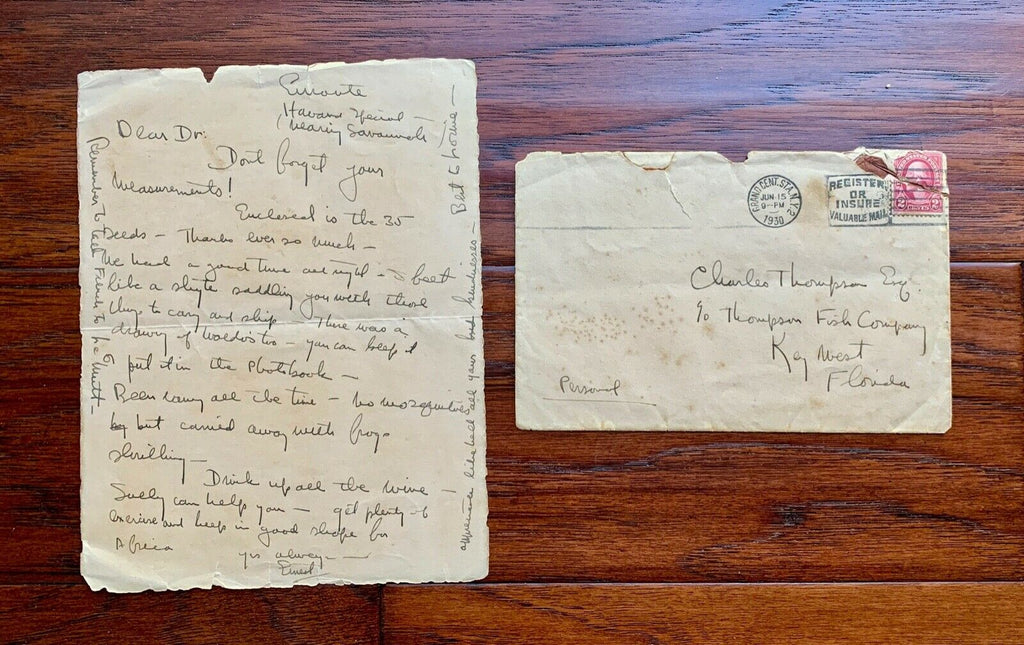 Enroute
Havana Special —
(nearing Savannah)
Dear Dr.
Dont forget your
measurements!
Enclosed is the 35
Deeds — Thanks ever so much —
We had a good time all right — I feel
like a saddling you with those
things to carry and ship There was a
drawing of Waldo's two — you can keep it
put it in the Photobook —
Been rainy all the time — no mosquitoes
but carried away with frogs
shrilling —
Drink up all the wine —
Sully can help you — get plenty of
exercise and keep in good shape for
Africa
yrs always —
Ernest
Remember to tell French to be Mutt —
appreciated liked all your kindnesses — Best to Lorine —
GRAND CENT. STA. N.Y. 2
JUN 15
9-PM
1930
REGISTER
OR
INSURE
VALUABLE MAIL
Charles Thompson Esq.
c/o Thompson Fish Company
Key West
Florida
Personal